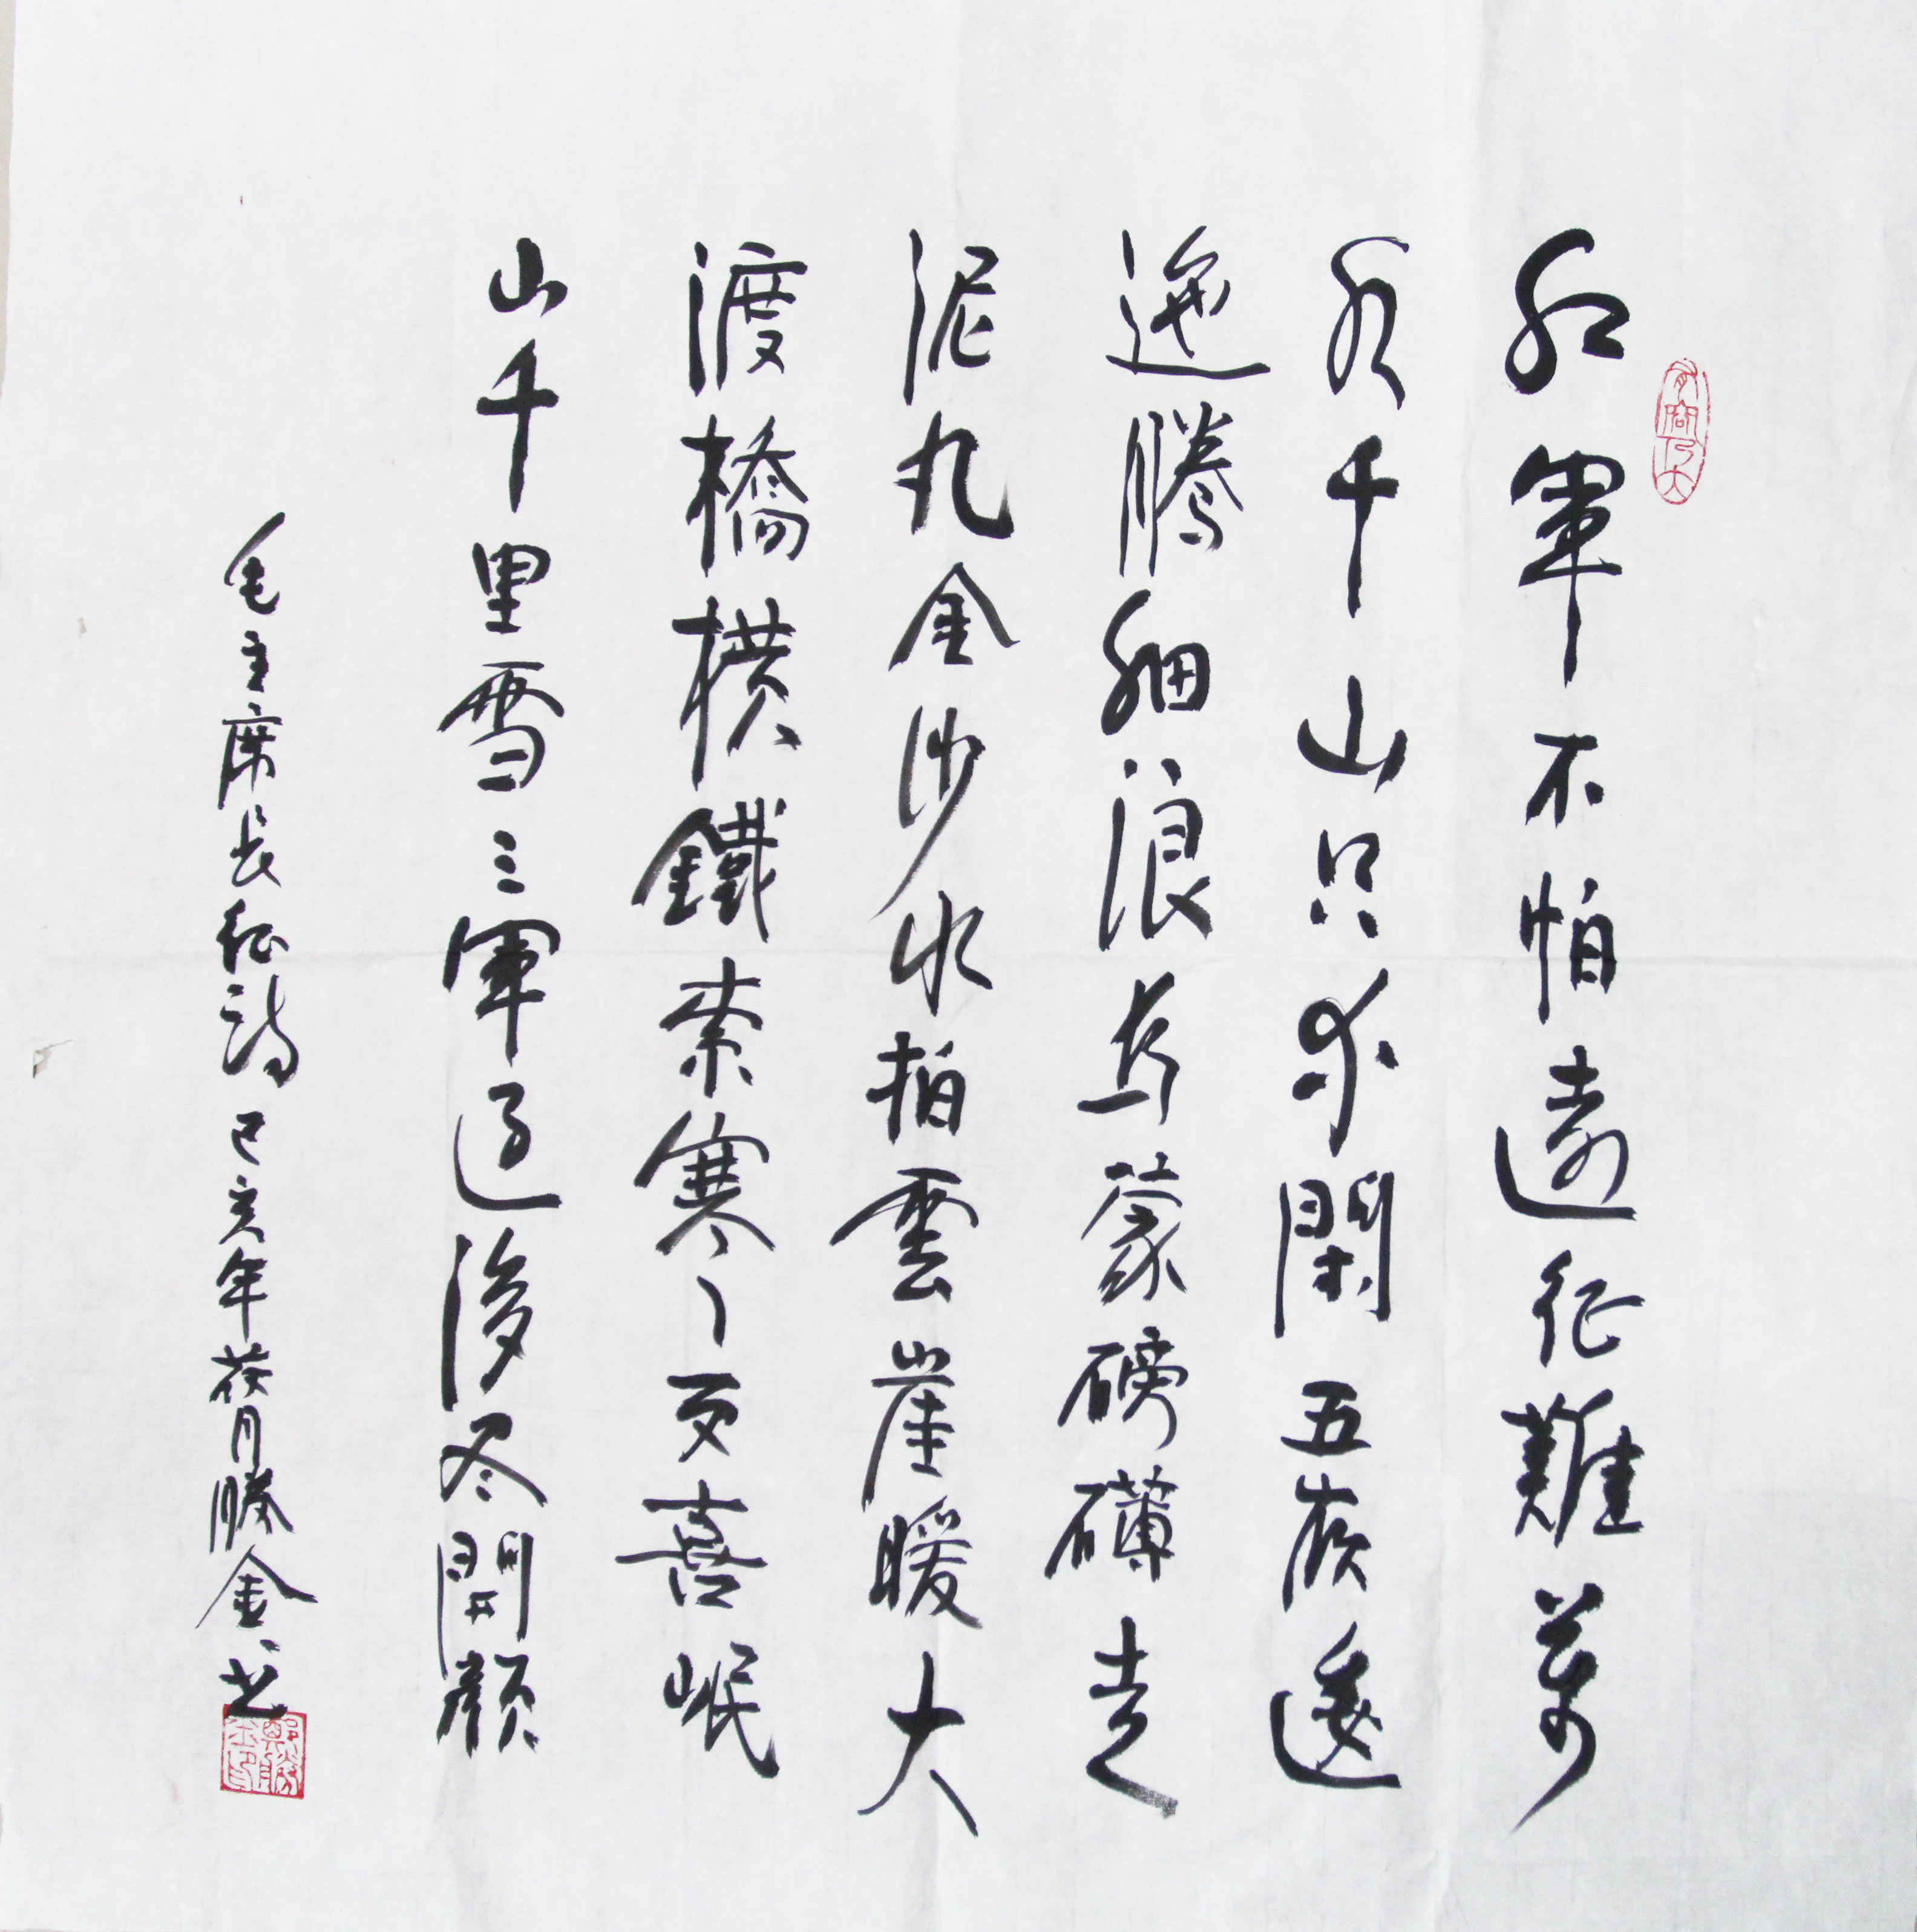 有容乃大
紅軍不怕遠征難萬
水千山只等閑五嶺逶
迤騰細浪烏蒙磅礴走
泥丸金沙水拍雲崖暖大
渡橋橫鐵索寒更喜岷
山千里雪三軍過後尽開顏
毛主席長征詩己亥年月勝金書
鄭勝金印